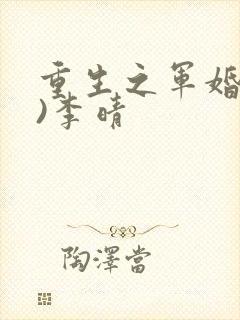 重生之军婚
)李晴
陶澤當